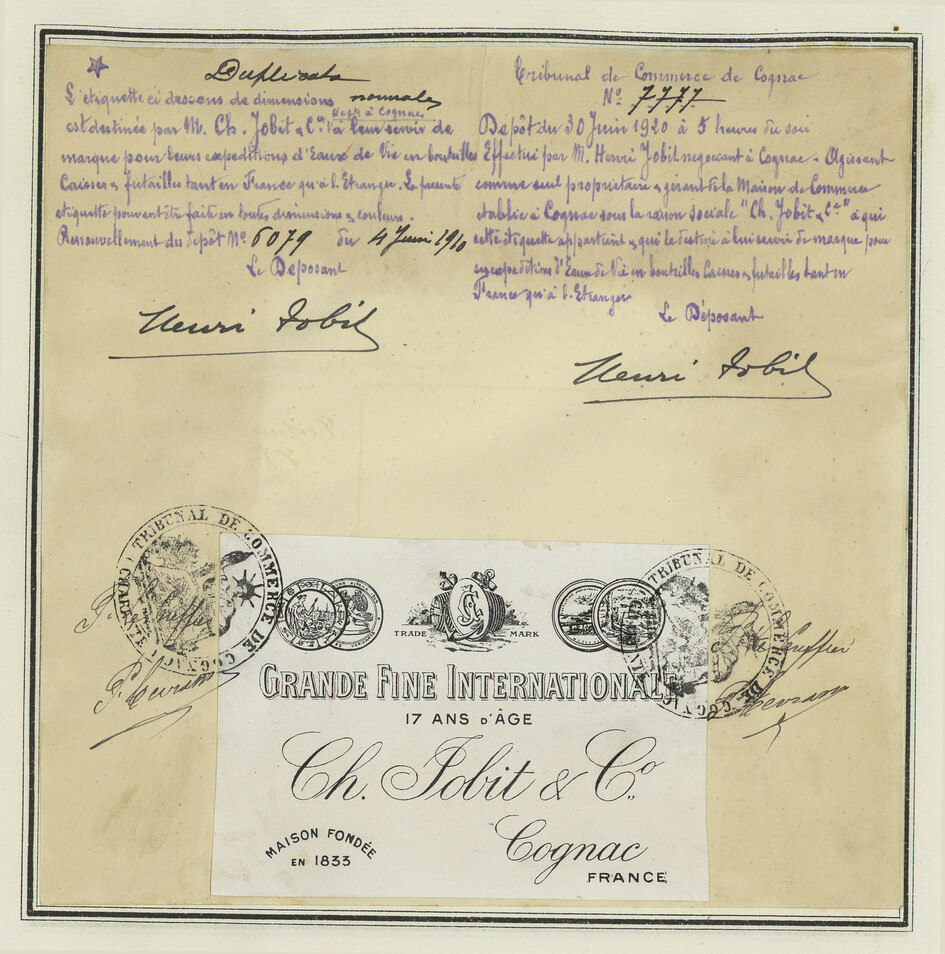 Duplicata
L'étiquette ci dessous de dimensions normales
est destinée par M. Ch. Jobit & Cie Negts à Cognac à leur servir de
marque pour leurs expeditions d'Eaux de Vie en bouteilles
Caisses & futailles tant en France qu'à l'Etranger. La presente
etiquette pouvant être faite en toutes dimensions & couleurs.
Renouvellement du depôt No. 6079 du 4 Juin 1910
Le Déposant
Henri Jobit
Tribunal de Commerce de Cognac
No. 7777
Depôt du 30 Juin 1920 à 5 heures du soir
Effectué par M. Henri Jobit negociant à Cognac - Agissant
comme seul propriétaire & gérant de la Maison de Commerce
etablie à Cognac sous la raison sociale "Ch. Jobit & Cie" à qui
cette étiquette appartient & qui la destine à lui servir de marque pour
ses expeditions d'Eaux de Vie en bouteilles Caisses & futailles tant en
France qu'à l'Etranger
Le Déposant
Henri Jobit
TRIBUNAL DE COMMERCE DE COGNAC
TRIBUNAL DE COMMERCE DE COGNAC
TRADE MARK
GRANDE FINE INTERNATIONALE
17 ANS D'ÂGE
Ch. Jobit & Co.
MAISON FONDÉE
EN 1833
Cognac
FRANCE